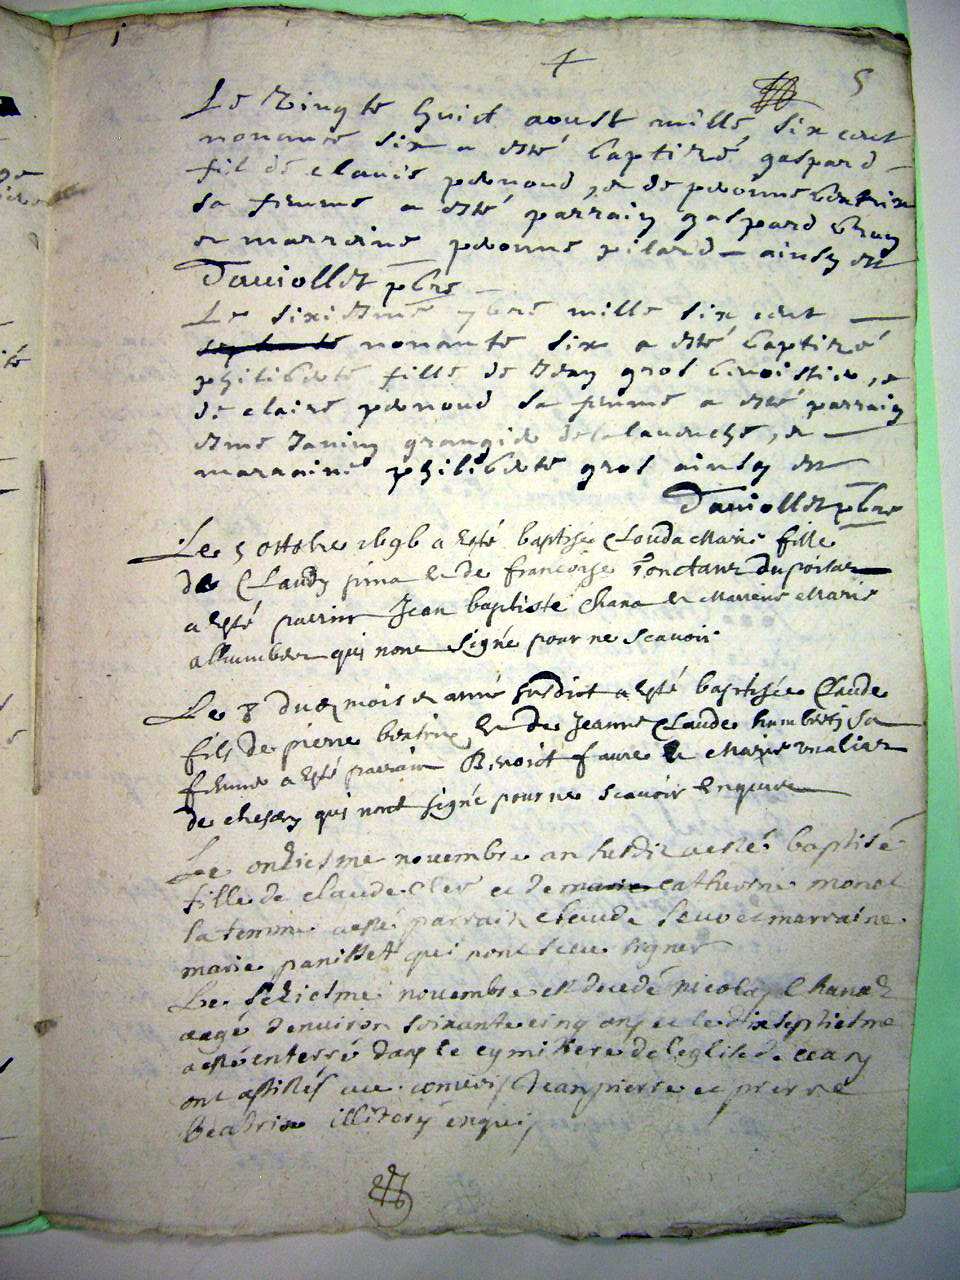 5
Le vingte huict aoust mille, six cent
nonante six a esté baptizé gaspard
fil de claude pernoud, et de pernne beatrix
sa femme a esté parrain gaspard
et marraine pernne pilard ainsy est
Daviollet pbre
Le sixiesme 7bre mille six cent
nonante six a esté baptizé
philiberte fille de Jean grol benoistier, et
de claire pernoud sa femme a esté parrain
Janin grangier de, et
marraine philiberte grol ainsy est
Daviollet pbre
Le 5 octobre 1696 a esté baptisé Clouda Marie fille
de Claudy pina et de francoise
a esté parrin Jean baptiste Chana et Mareine Marie
alhumbert qui nont signé pour ne scavoir
Le 8 du mois et anné susdict a esté baptisée Claude
fils de pierre beatrix et de Jeanne Claude humbert sa
femme a esté parrain Benoict faure et Marie
de chesery qui nont signé pour ne scavoir enquis
Le onziesme novembre an susdit a esté baptisé
fille de claude et de catherine monet
sa femme a esté parrain claude et marraine
marie panisset qui nont sceu signer
Le seziesme novembre est decedé nicolas Chana
aagé denviron soixante cinq ans et le dixseptiesme
a esté enterré dans le cymittere de leglise de
ont assistés au convois Jean pierre et pierre
Beatrix illiterés enquis